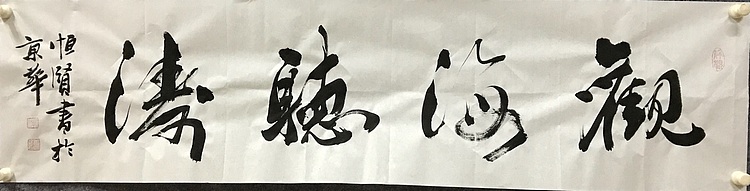 觀海聽濤
恒賢書於
京華